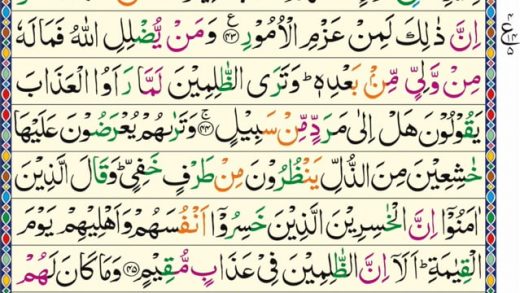 اِنَّ ذٰلِكَ لَمِنْ عَزْمِ الْاُمُوْرِ ﴿۴۳﴾ وَمَنْ یُّضْلِلِ اللّٰهُ فَمَالَهٗ
مِنْ وَّلِیٍّ مِّنْۢ بَعْدِهٖ ؕ وَتَرَی الظّٰلِمِیْنَ لَمَّا رَاَوُا الْعَذَابَ
یَقُوْلُوْنَ هَلْ اِلٰی مَرَدٍّ مِّنْ سَبِیْلٍ ﴿۴۴﴾ وَتَرٰىهُمْ یُعْرَضُوْنَ عَلَیْهَا
خٰشِعِیْنَ مِنَ الذُّلِّ یَنْظُرُوْنَ مِنْ طَرْفٍ خَفِیٍّ ؕ وَقَالَ الَّذِیْنَ
اٰمَنُوْۤا اِنَّ الْخٰسِرِیْنَ الَّذِیْنَ خَسِرُوْۤا اَنْفُسَهُمْ وَاَهْلِیْهِمْ یَوْمَ
الْقِیٰمَةِ ؕ اَلَاۤ اِنَّ الظّٰلِمِیْنَ فِیْ عَذَابٍ مُّقِیْمٍ ﴿۴۵﴾ وَمَا كَانَ لَهُمْ